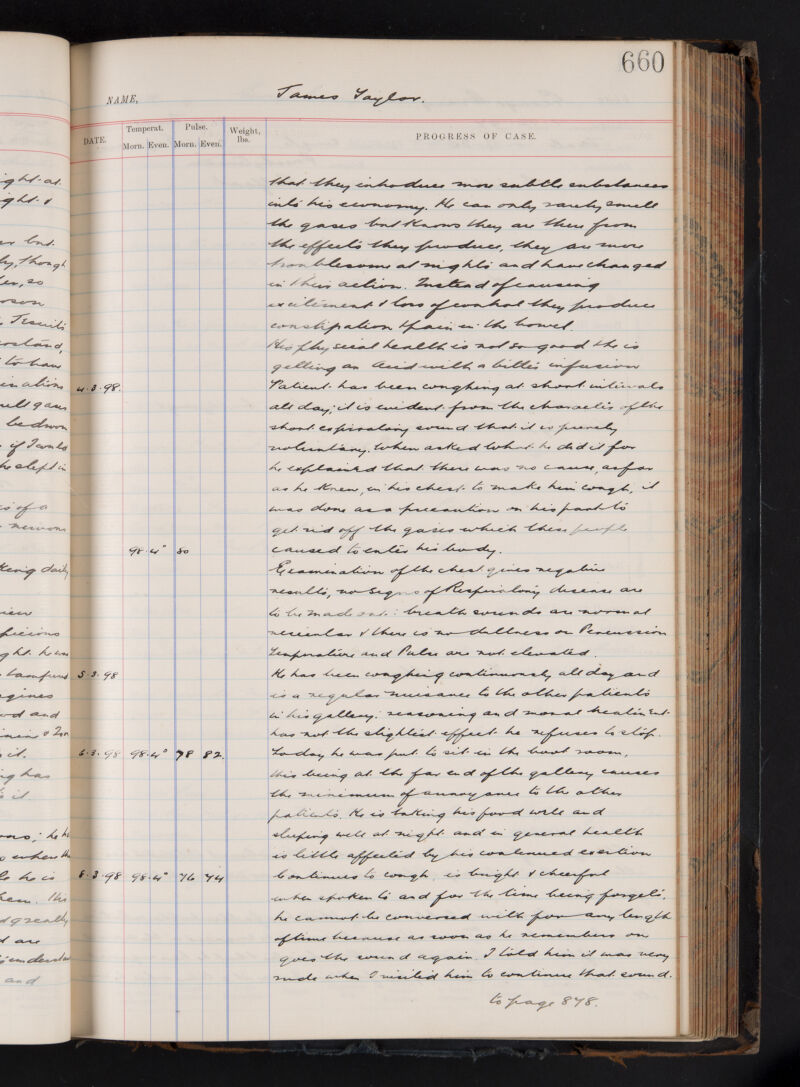 660
NAME, James Taylor.
DATE. Temperat. Pulse. Weight, lbs. PROGRESS OF CASE.
Morn. Even. Morn. Even.
that they introduce more subtle substances
into his economy. He can only rarely smell
the gases but knows they are there from
the effects they produce, they are more
troublesome at nights and have changed
in their action. Instead of causing
excitement & loss of control they produce
constipation & pain in the bowel
His physical health is not so good & he is
getting an Acid with a bitter infusion
4.3.98. Patient has been coughing at short intervals
all day; it is evident from the character of the
short expiratory sound that it is purely
voluntary. When asked what he did it for
he explained that there was no cause, as far
as he knew, in his chest to make him cough, it
was done as a precaution on his part to
get rid off the gases which these people
98.4° 80 caused to enter his body.
Examination of the chest gives negative
results, no signs of Respiratory disease are
to be made out: breath sounds are normal
vesicular & there is no dullness on Percussion
Temperature and Pulse are not elevated.
5.3.98 He has been coughing continuously all day and
is a regular nuisance to the other patients
in his gallery: reasoning and moral treatment
has not the slightest effect he refuses to stop.
6.3.98 98.4° 78 82. Today he was put to sit in the boot room,
this being at the far end of the gallery causes
the minimum of annoyance to the other
patients. He is taking his food well and
sleeping well at night and in general health
is little affected by his continued exertion
8.3.98 98.4° 76 74 Continues to cough, is bright & cheerful
when spoken to and for the time being forgets.
he cannot be conversed with for any length
of time because as soon as he remembers on
goes the sound again. I told him it was very
rude when I visited him to continue that sound.
to page 878.